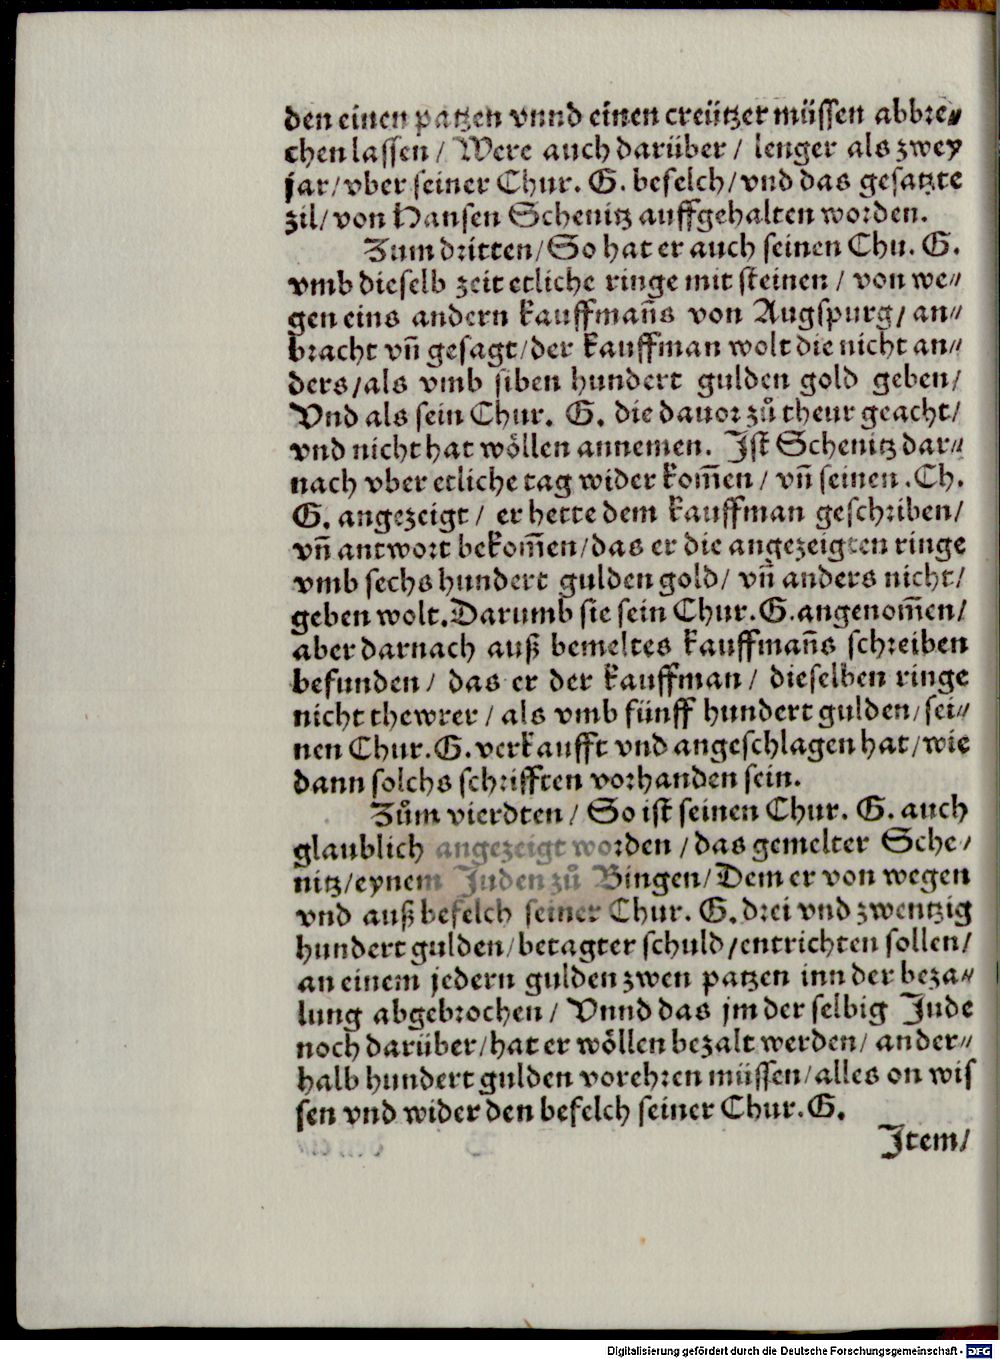 den einen patzen vnnd einen creützer müssen abbre⸗
chen lassen / Were auch darüber / lenger als zwey
jar / vber seiner Chur. G. befelch / vnd das gesatzte
zil / von Hansen Schenitz auffgehalten worden.
Zum dritten / So hat er auch seinen Chu. G.
vmb dieselb zeit etliche ringe mit steinen / von we⸗
gen eins andern kauffman̄s von Augspurg / an⸗
bracht vn̄ gesagt / der kauffman wolt die nicht an⸗
ders / als vmb siben hundert gulden gold geben /
Vnd als sein Chur. G. die dauor zů theur geacht /
vnd nicht hat wöllen annemen. Ist Schenitz dar⸗
nach vber etliche tag wider kom̄en / vn̄ seinen .Ch.
G. angezeigt / er hette dem kauffman geschriben /
vn̄ antwort bekom̄en / das er die angezeigten ringe
vmb sechs hundert gulden gold / vn̄ anders nicht /
geben wolt. Darumb sie sein Chur. G. angenom̄en /
aber darnach auß bemeltes kauffman̄s schreiben
befunden / das er der kauffman / dieselben ringe
nicht thewrer / als vmb fünff hundert gulden / sei⸗
nen Chur. G. verkaufft vnd angeschlagen hat / wie
dann solchs schrifften vorhanden sein.
Zům vierdten / So ist seinen Chur. G. auch
glaublich angezeigt worden / das gemelter Sche⸗
nitz / eynem Juden zů Bingen / Dem er von wegen
vnd auß befelch seiner Chur. G. drei vnd zwentzig
hundert gulden / betagter schuld / entrichten sollen /
an einem jedern gulden zwen patzen inn der beza⸗
lung abgebrochen / Vnnd das jm der selbig Jude
noch darüber / hat er wöllen bezalt werden / ander⸗
halb hundert gulden vorehren müssen / alles on wis
sen vnd wider den befelch seiner Chur. G.
Item /
Digitalisierung gefördert durch die Deutsche Forschungsgemeinschaft - DFG